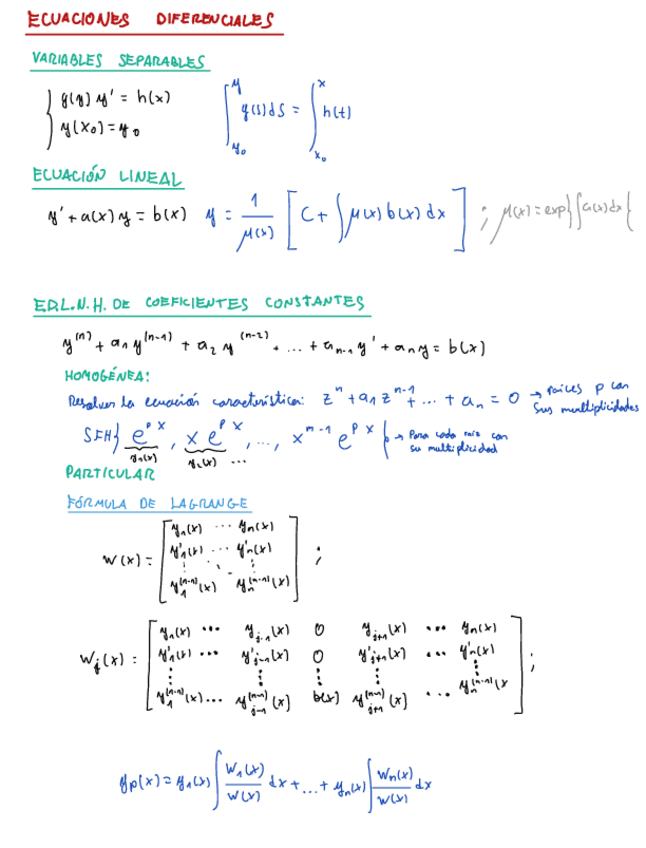 ECUACIONES DIFERENCIALES
VARIABLES SEPARABLES
{ g(y) y' = h(x)   ∫_{y₀}^{y} g(s)ds = ∫_{x₀}^{x} h(t)
{ y(x₀) = y₀
ECUACIÓN LINEAL
y' + a(x) y = b(x)   y = 1/μ(x) [ C + ∫ μ(x) b(x) dx ] ; μ(x) = exp{ ∫ a(x) dx {
E.D.L.N.H. DE COEFICIENTES CONSTANTES
y^(n) + a₁ y^(n-1) + a₂ y^(n-2) + ... + a_{n-1} y' + a_n y = b(x)
HOMOGÉNEA:
Resolver la ecuación característica: z^n + a₁ z^{n-1} + ... + a_n = 0 → raíces p con
sus multiplicidades
SFH} e^{px}, x e^{px}, ..., x^{m-1} e^{px} { → Para cada raíz con
su multiplicidad
y₁(x)   y₂(x) ...
PARTICULAR
FÓRMULA DE LAGRANGE
y₁(x) ... y_n(x)
W(x) = [ y'₁(x) ... y'_n(x) ] ;
⋮ ⋱ ⋮
y₁^(n-1)(x) y_n^(n-1)(x)
y₁(x) ... y_{j-1}(x) 0 y_{j+1}(x) ... y_n(x)
W_j(x) = [ y'₁(x) ... y'_{j-1}(x) 0 y'_{j+1}(x) ... y'_n(x) ] ;
⋮ ⋮ ⋮ ⋮ ⋮
y₁^(n-1)(x) ... y_{j-1}^(n-1)(x) b(x) y_{j+1}^(n-1)(x) ... y_n^(n-1)(x
y_p(x) = y₁(x) ∫ W₁(x)/W(x) dx + ... + y_n(x) ∫ W_n(x)/W(x) dx